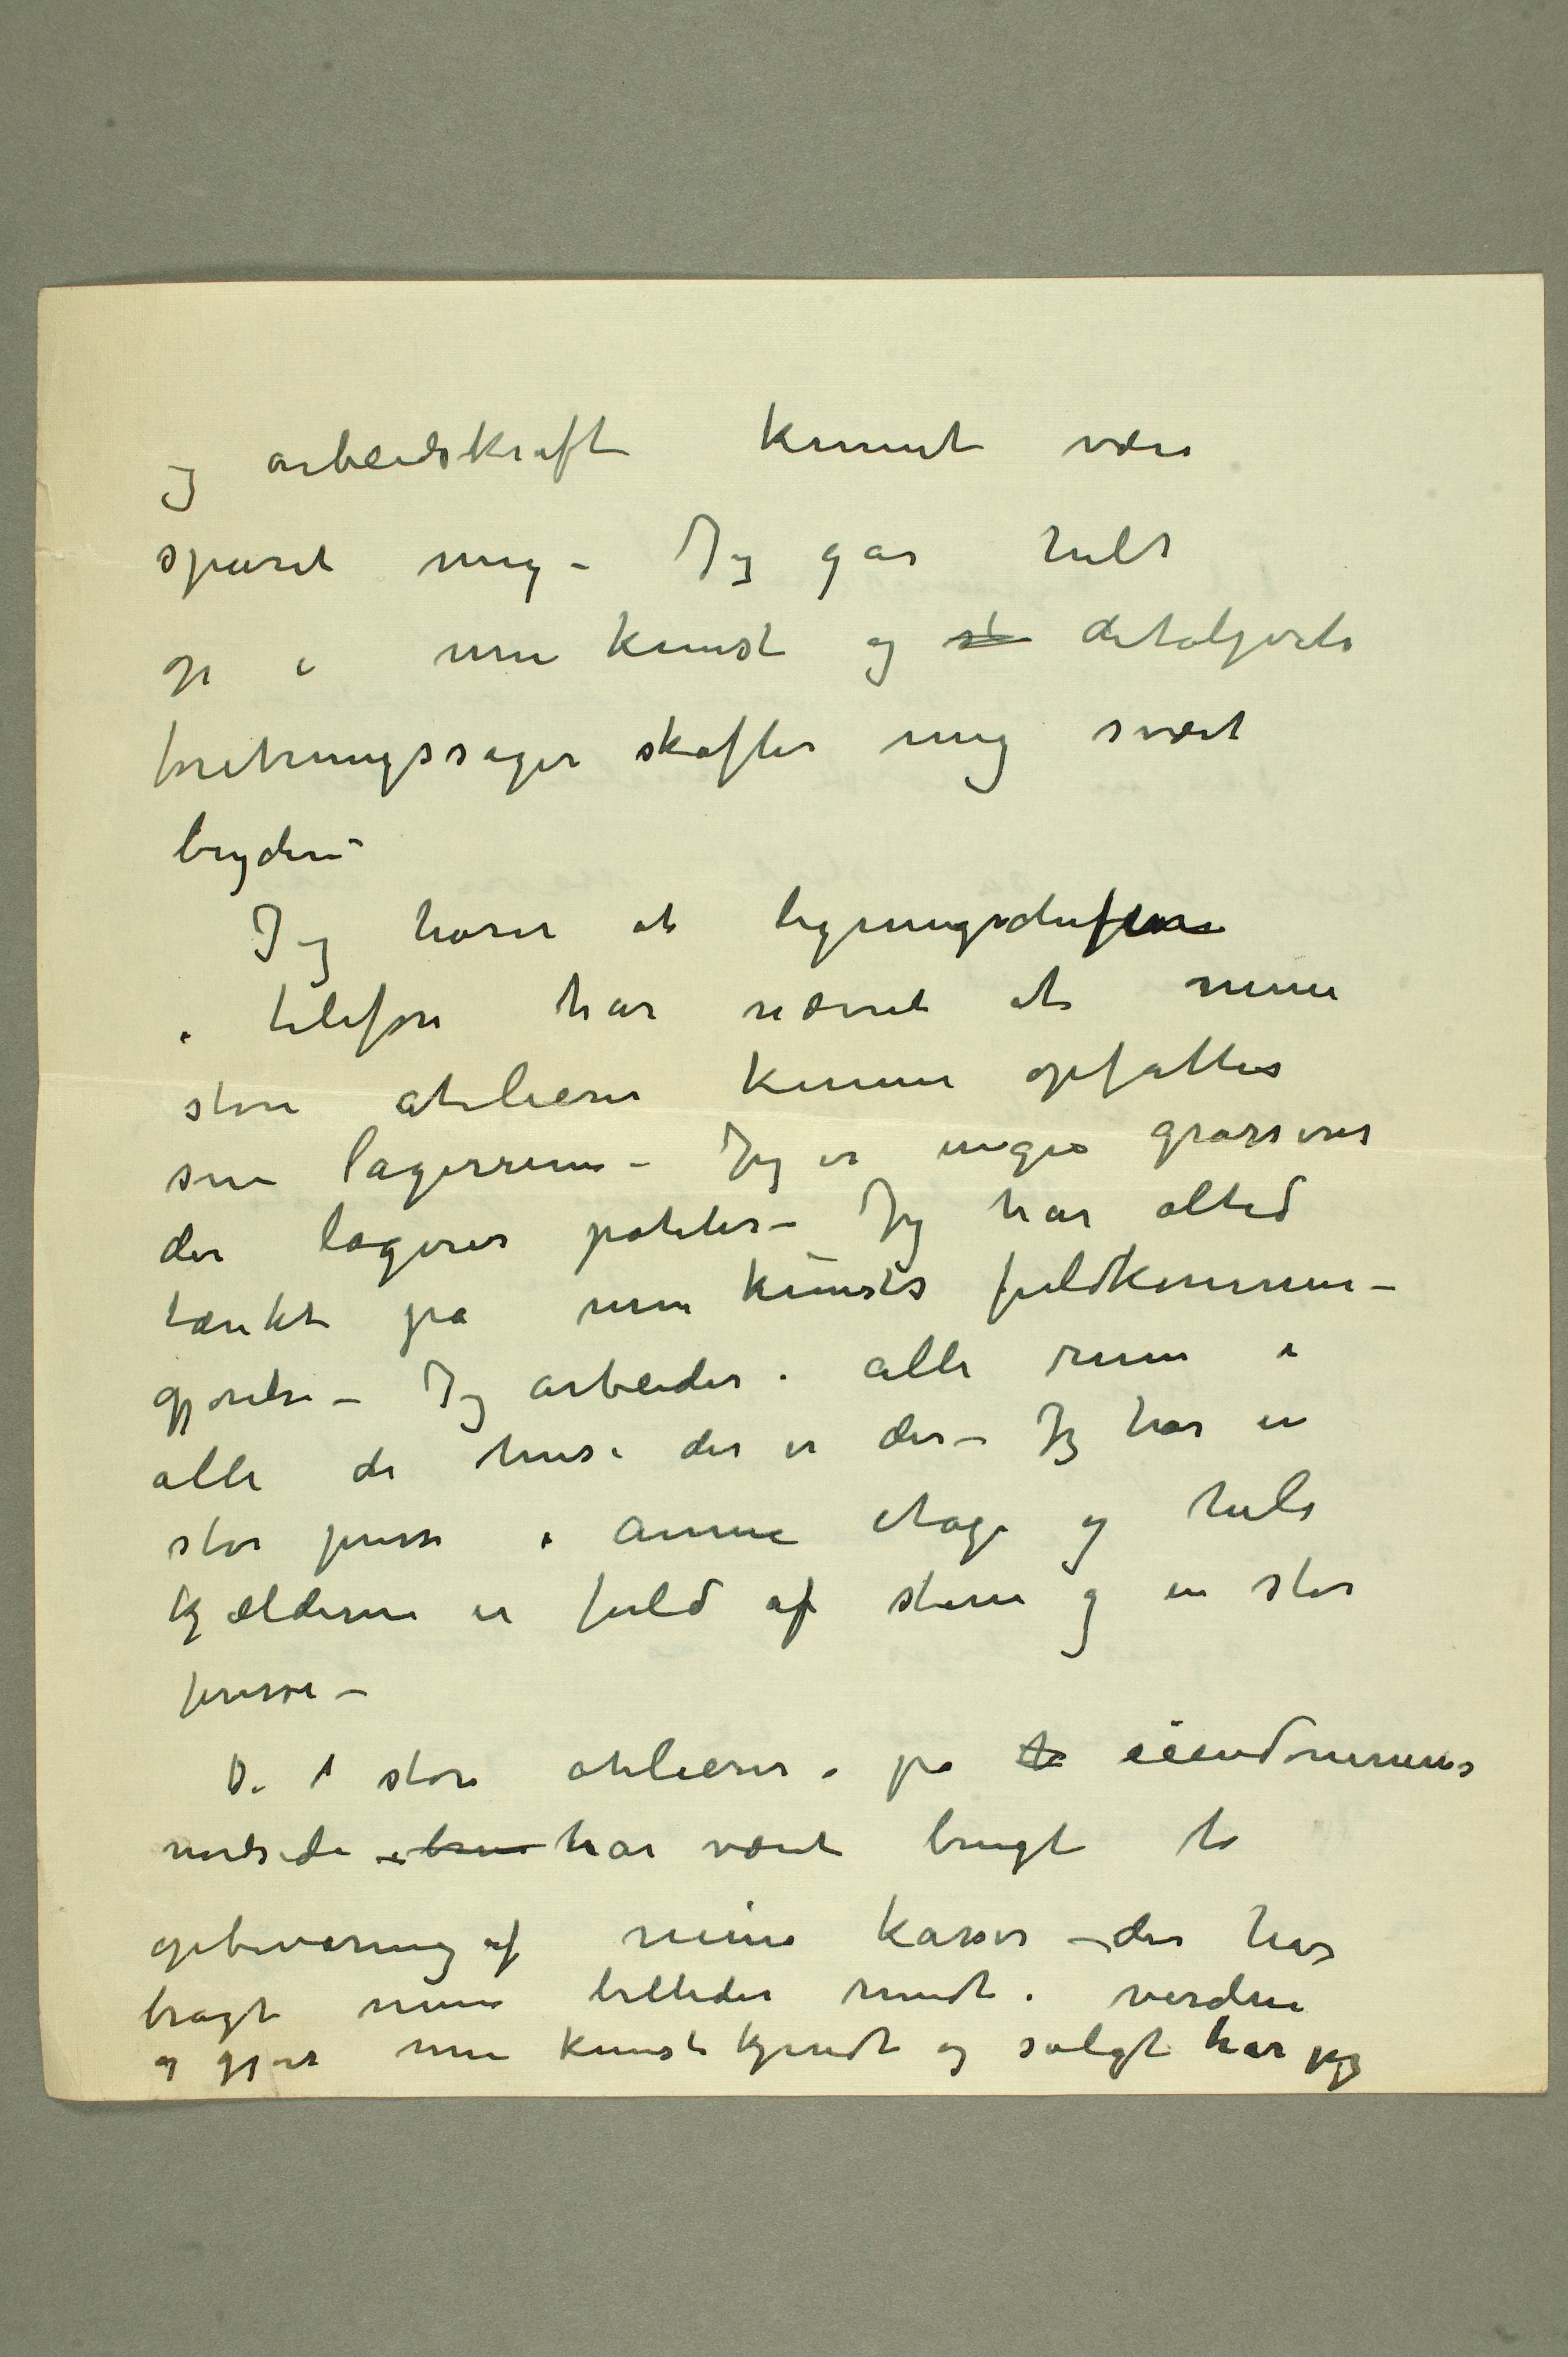 og arbeidskraft kunnet være
sparet mig – Jeg går helt
op i min kunst og st detaljerte
foretningssager skaffer mig svært
bryderi –
Jeg hører at ligningschefen
i telefon har nævnt at mine
store atelierer kunne opfattes
som lagerrum – Jeg er ingen grosserer
der lagrer poteter – Jeg har altid
tænkt på min kunsts fuldkommen-
gjørelse – Jeg arbeider i alle rum i
alle de huse der er der – Jeg har en
stor presse i anne etage og hele
kjælderen er fuld af stene og en stor
presse –
De store atelierer på to eiendommens
nordside i brun har været brugt to
opbevaring af mine kasser – der har
bragt mine billeder rundt i verden
og gjort min kunst kjendt og solgt har jeg